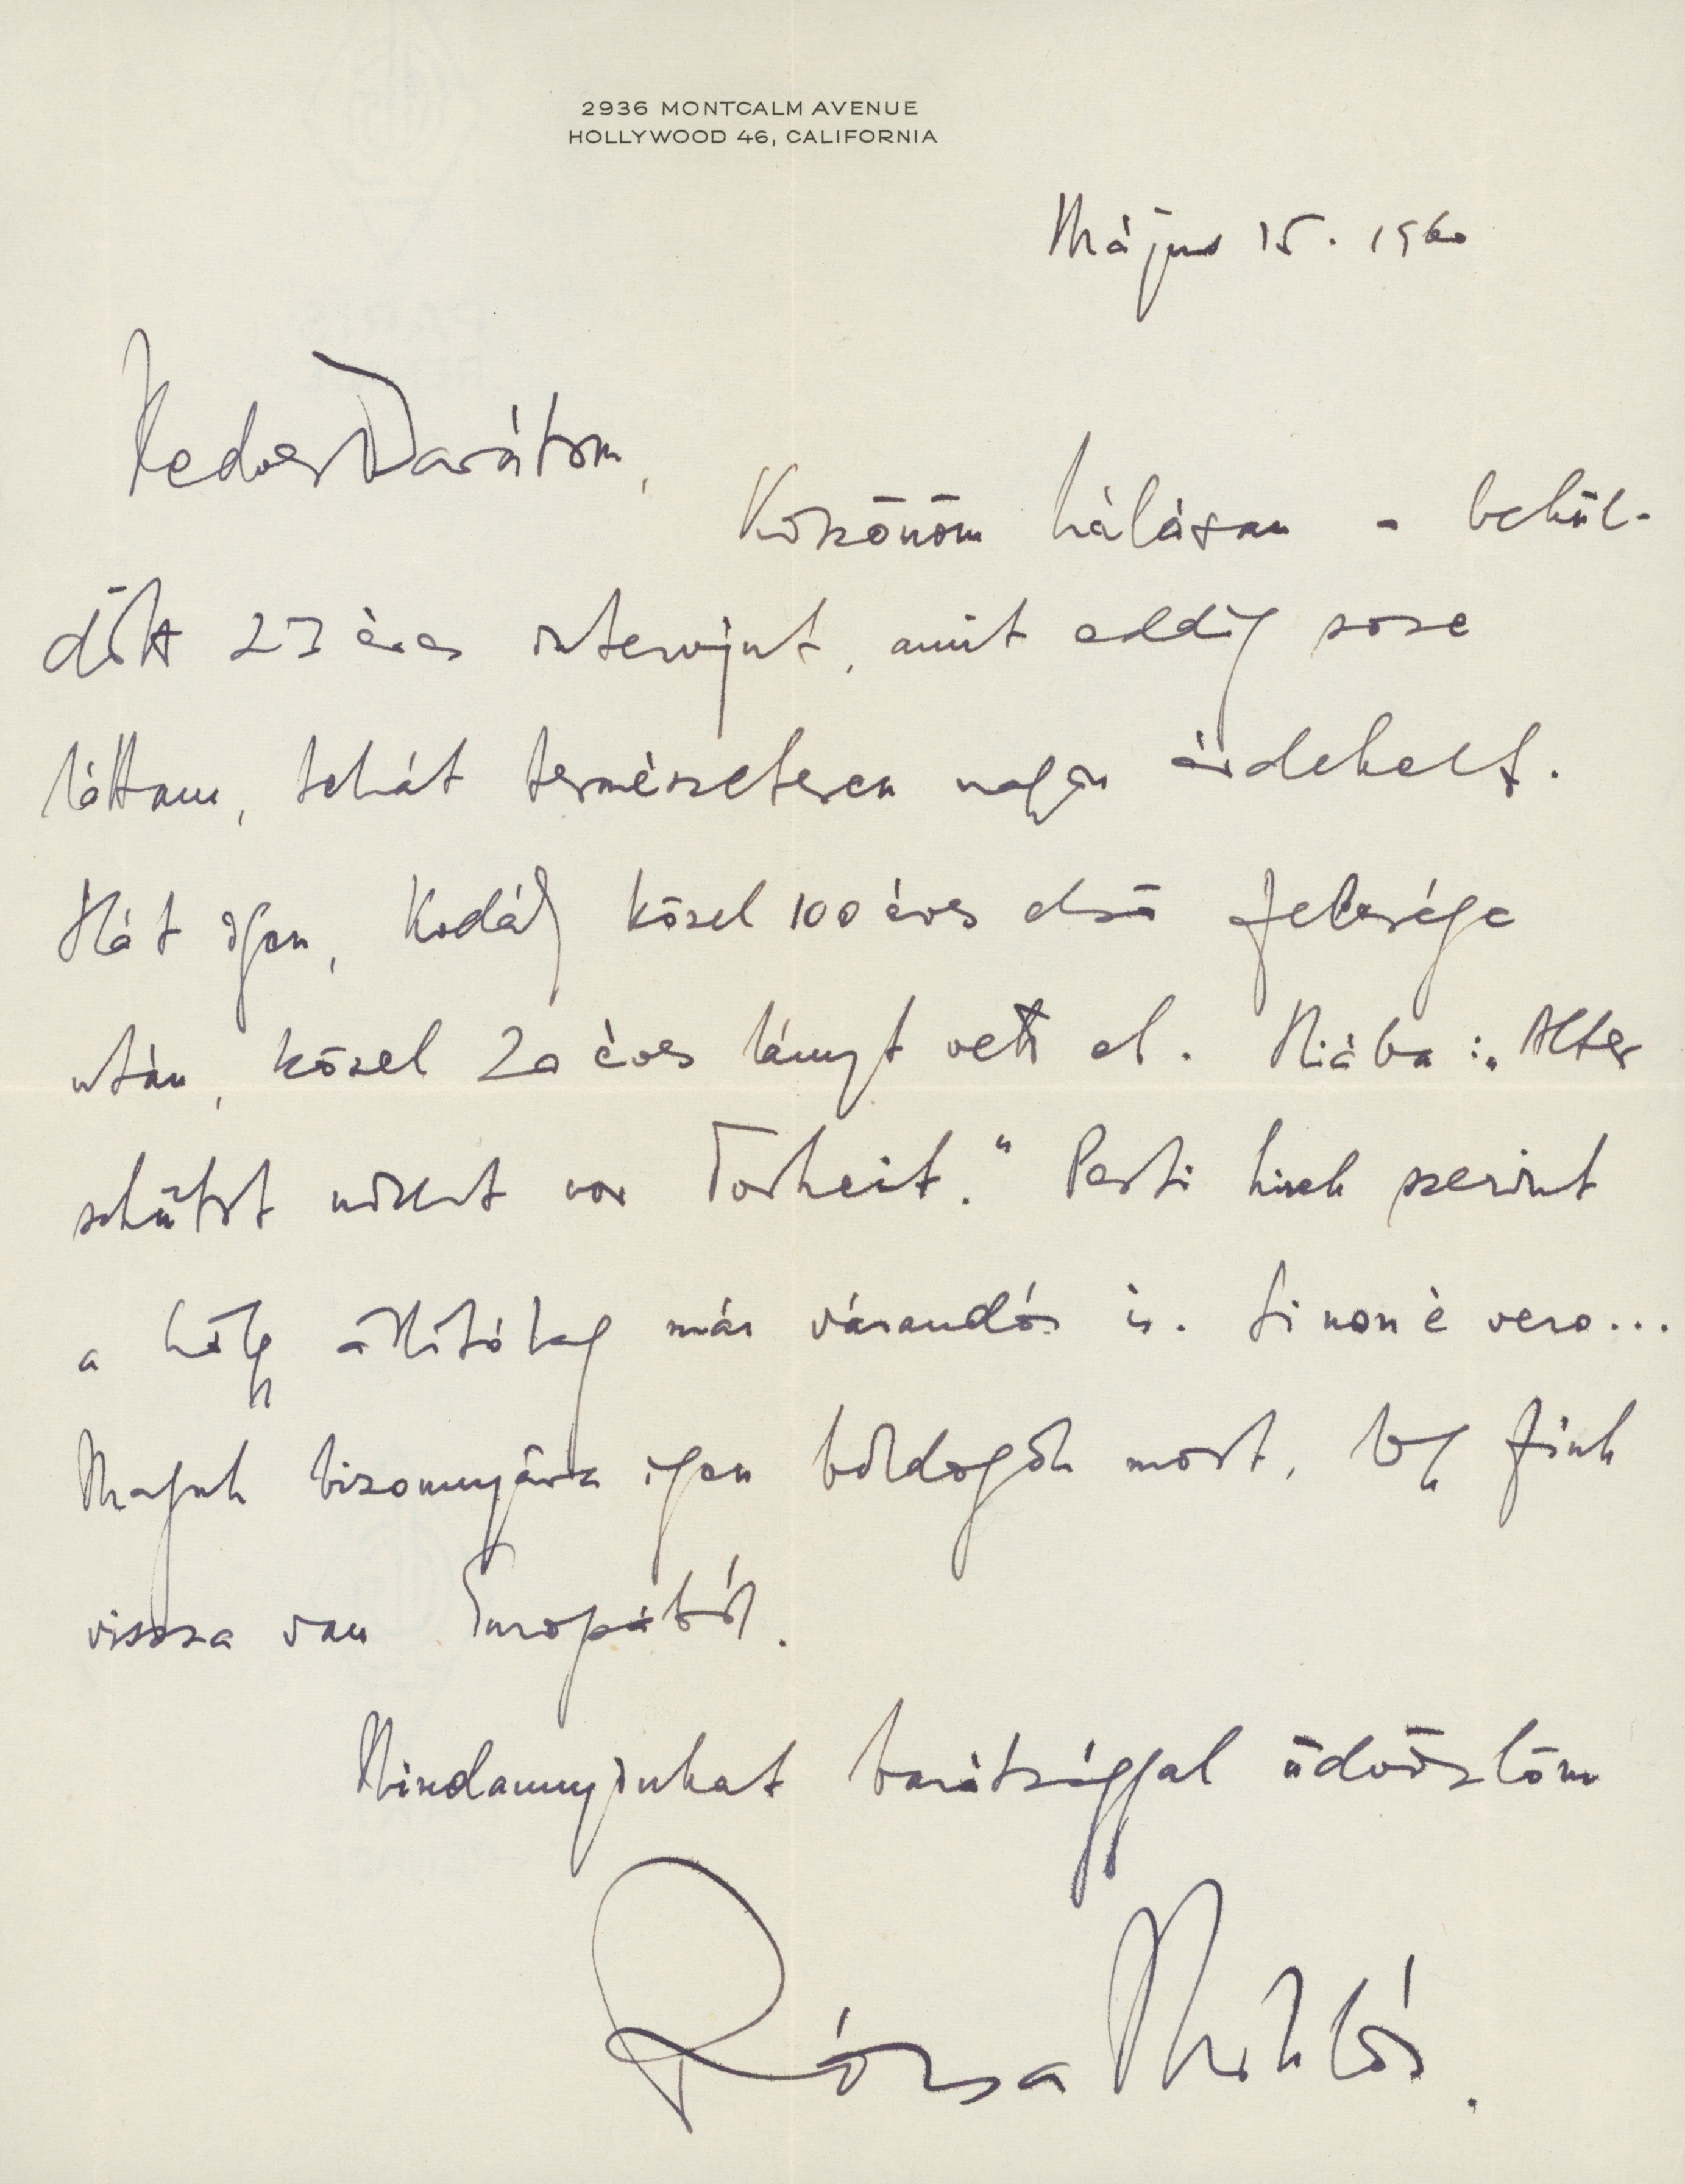 2936 MONTCALM AVENUE
HOLLYWOOD 46, CALIFORNIA
Május 15. 1960
Kedves Barátom,
Köszönöm hálásan a bekül-
dött 23 éves intervjut, amit eddig sose
láttam, tehát természetesen nagyon érdekelt.
Hát igen, Kodály közel 100 éves első felesége
után, közel 20 éves lányt vett el. Hiába: „Alter
schützt nicht vor Torheit." Pesti hirek szerint
a hölgy állitólag már várandós is. Si non è vero...
Maguk bizonnyára igen boldogok most, hogy fiuk
vissza van Európából.
Mindannyiukat barátsággal üdvözlöm
Rózsa Miklós.